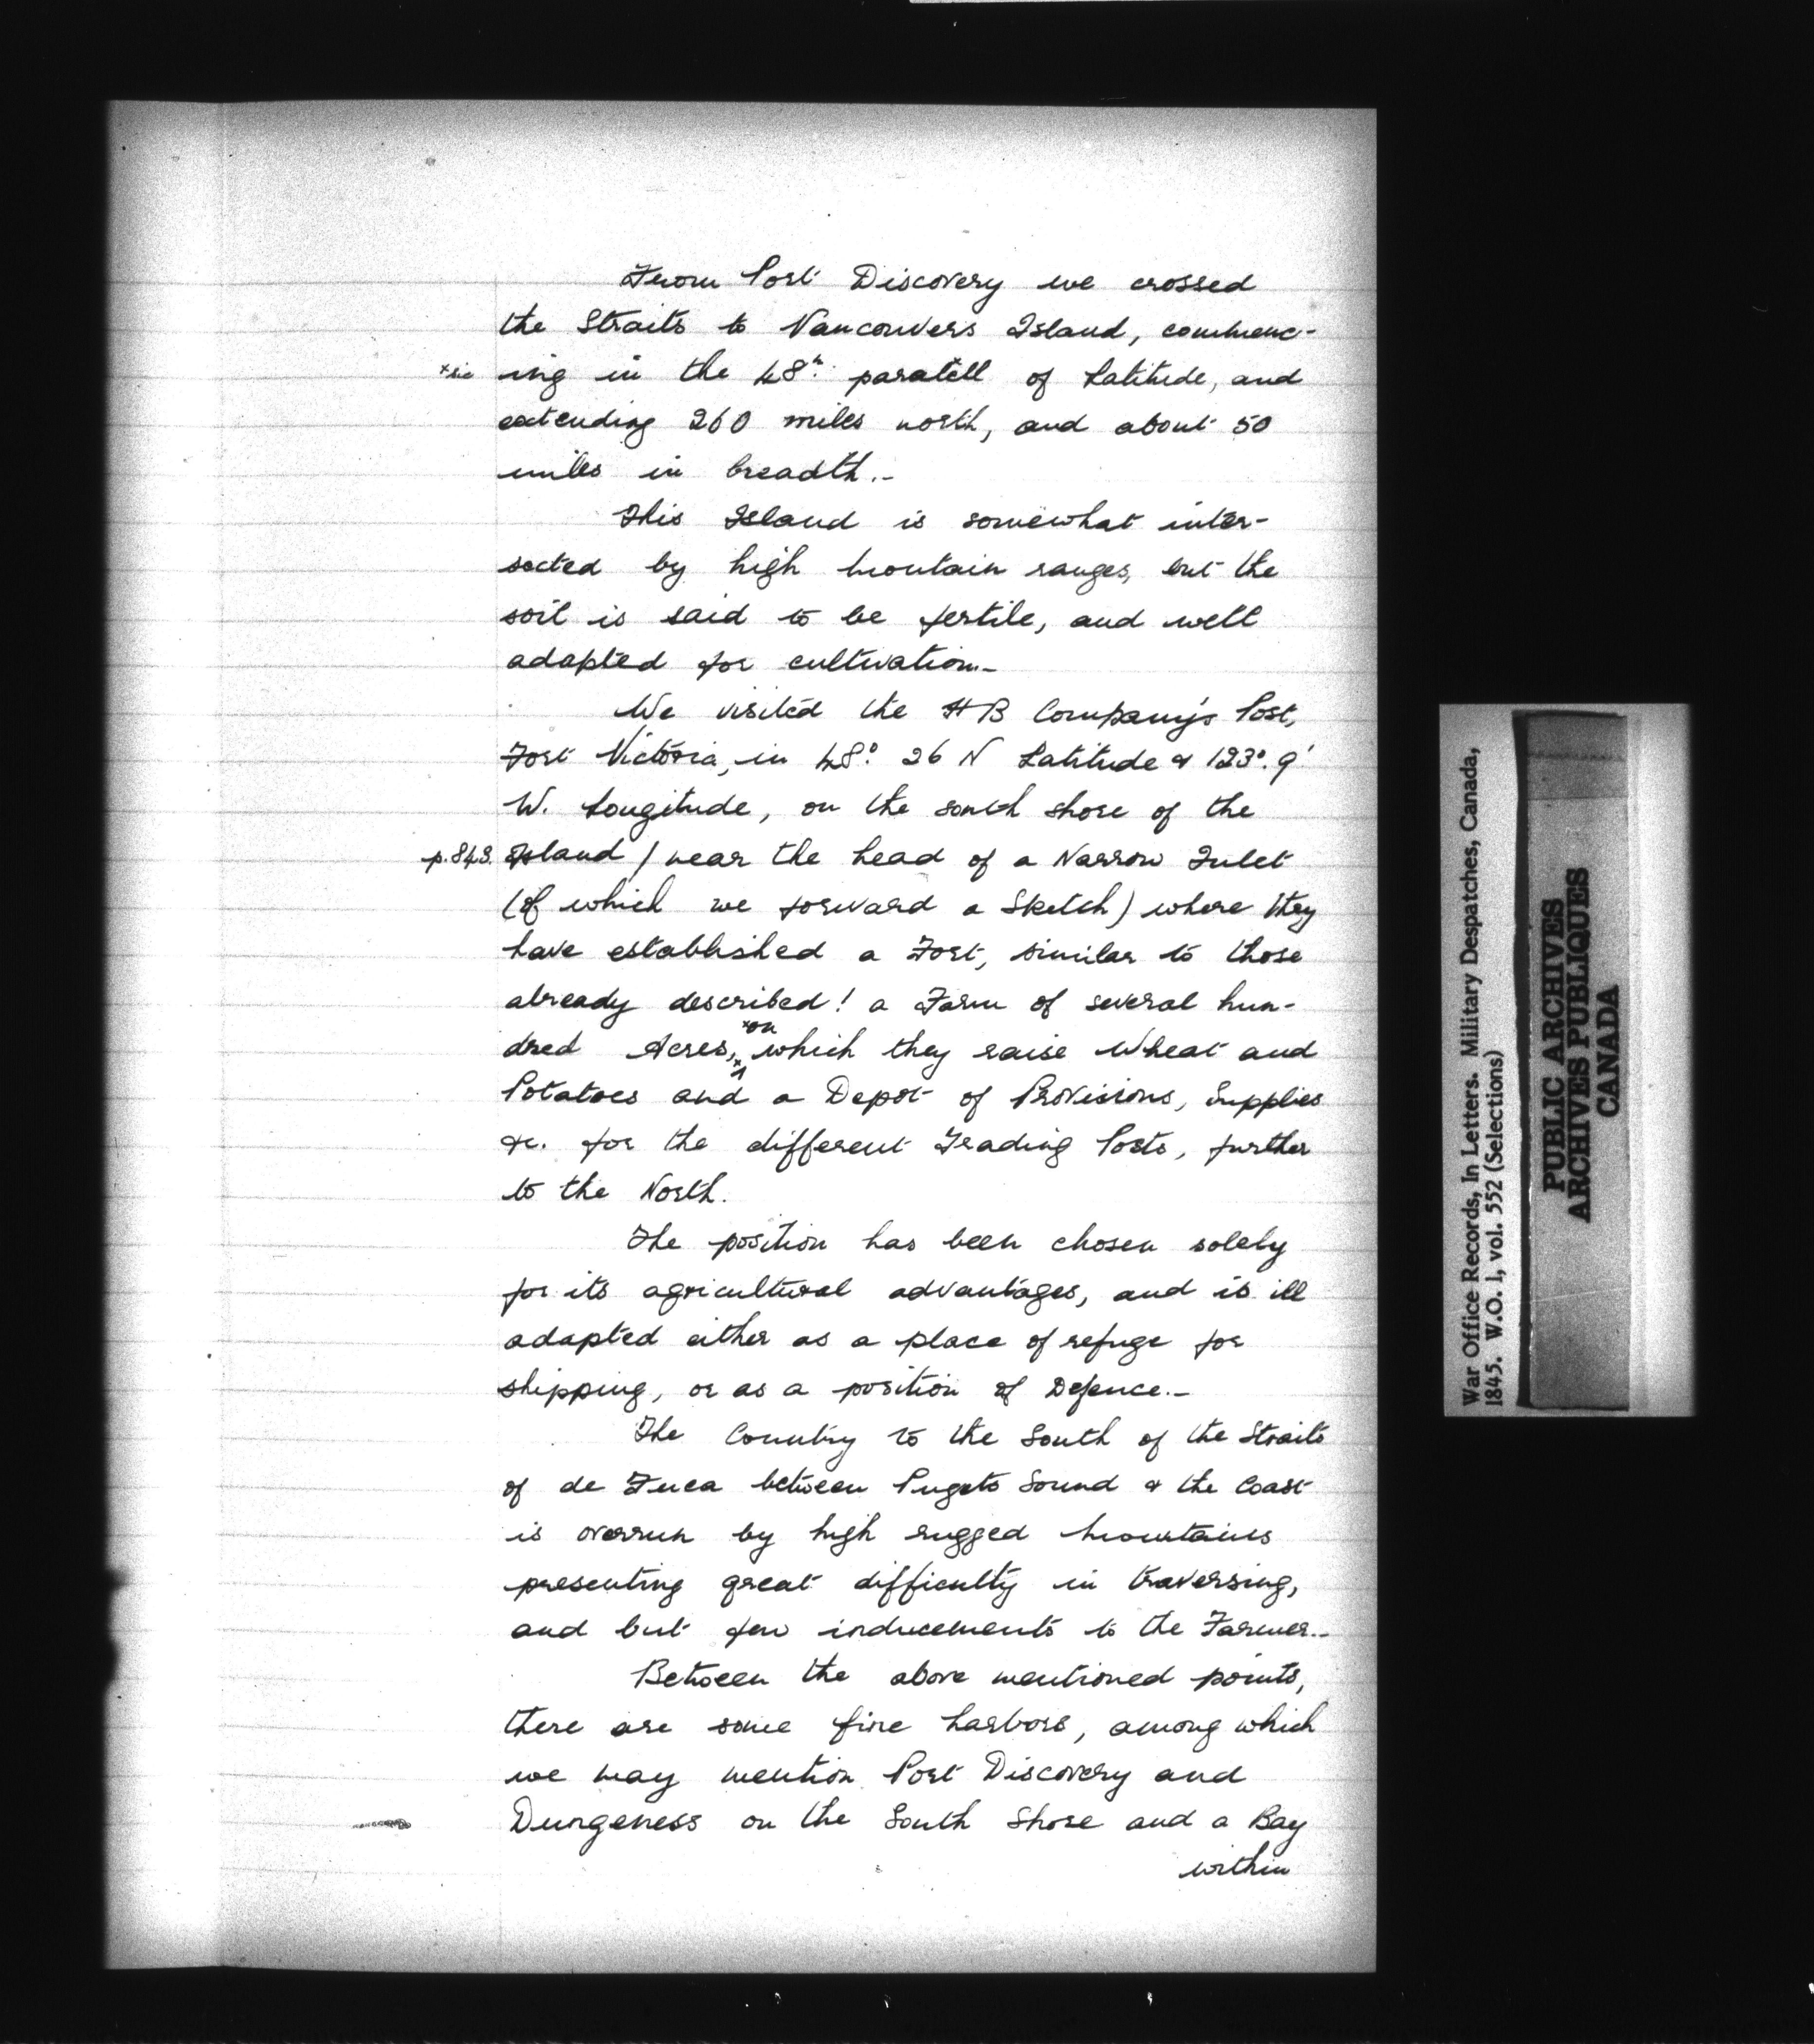 From Port Discovery we crossed
the Straits to Vancouvers Island, commenc-
×sic ing in the 48th paralell of Latitude, and
extending 260 miles north, and about 50
miles in breadth.-
This Island is somewhat inter-
sected by high mountain ranges, but the
soil is said to be fertile, and well
adapted for cultivation.-
We visited the HB Company's Post,
Fort Victoria, in 48° 26 N Latitude & 123°. 9'
W. Longitude, on the south shore of the
p.843. Island / near the head of a Narrow Inlet
(of which we forward a Sketch) where they
have established a Fort, similar to those
already described! a Farm of several hun-
×on
dred Acres, × which they raise Wheat and
Potatoes and a Depot of Provisions, Supplies
&c. for the different Trading Posts, further
to the North.
The position has been chosen solely
for its agricultural advantages, and is ill
adapted either as a place of refuge for
shipping, or as a position of Defence.-
The Country to the South of the Straits
of de Fuca between Pugets Sound & the Coast
is overrun by high rugged mountains
presenting great difficulty in traversing,
and but few inducements to the Farmer.-
Between the above mentioned points,
there are some fine harbors, among which
we may mention Port Discovery and
Dungeness on the South Shore and a Bay
within
War Office Records, In Letters. Military Despatches, Canada,
1845. W.O. 1, vol. 552 (Selections)
PUBLIC ARCHIVES
ARCHIVES PUBLIQUES
CANADA